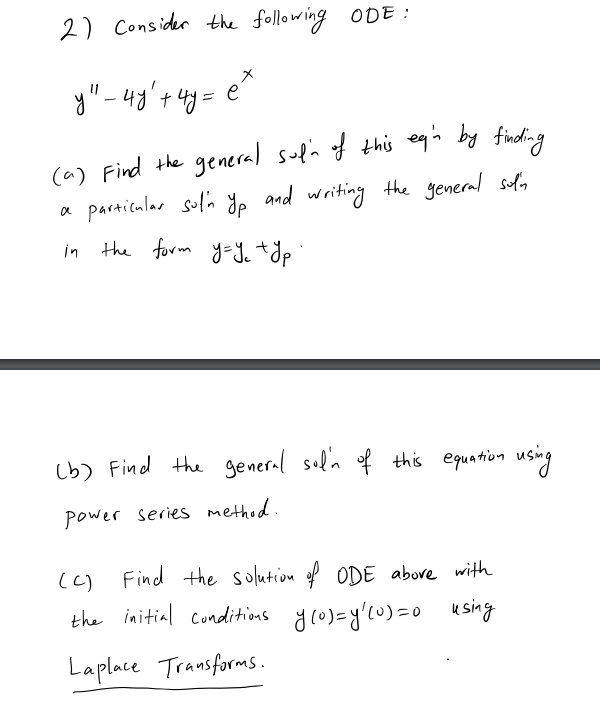 2) Consider the following ODE :
y" - 4y' + 4y = e^x
(a) Find the general sol'n of this eq'n by finding
a particular sol'n yp and writing the general sol'n
in the form y=yc+yp.
(b) Find the general sol'n of this equation using
power series method.
(c) Find the solution of ODE above with
the initial conditions y(0)=y'(0)=0 using
Laplace Transforms.